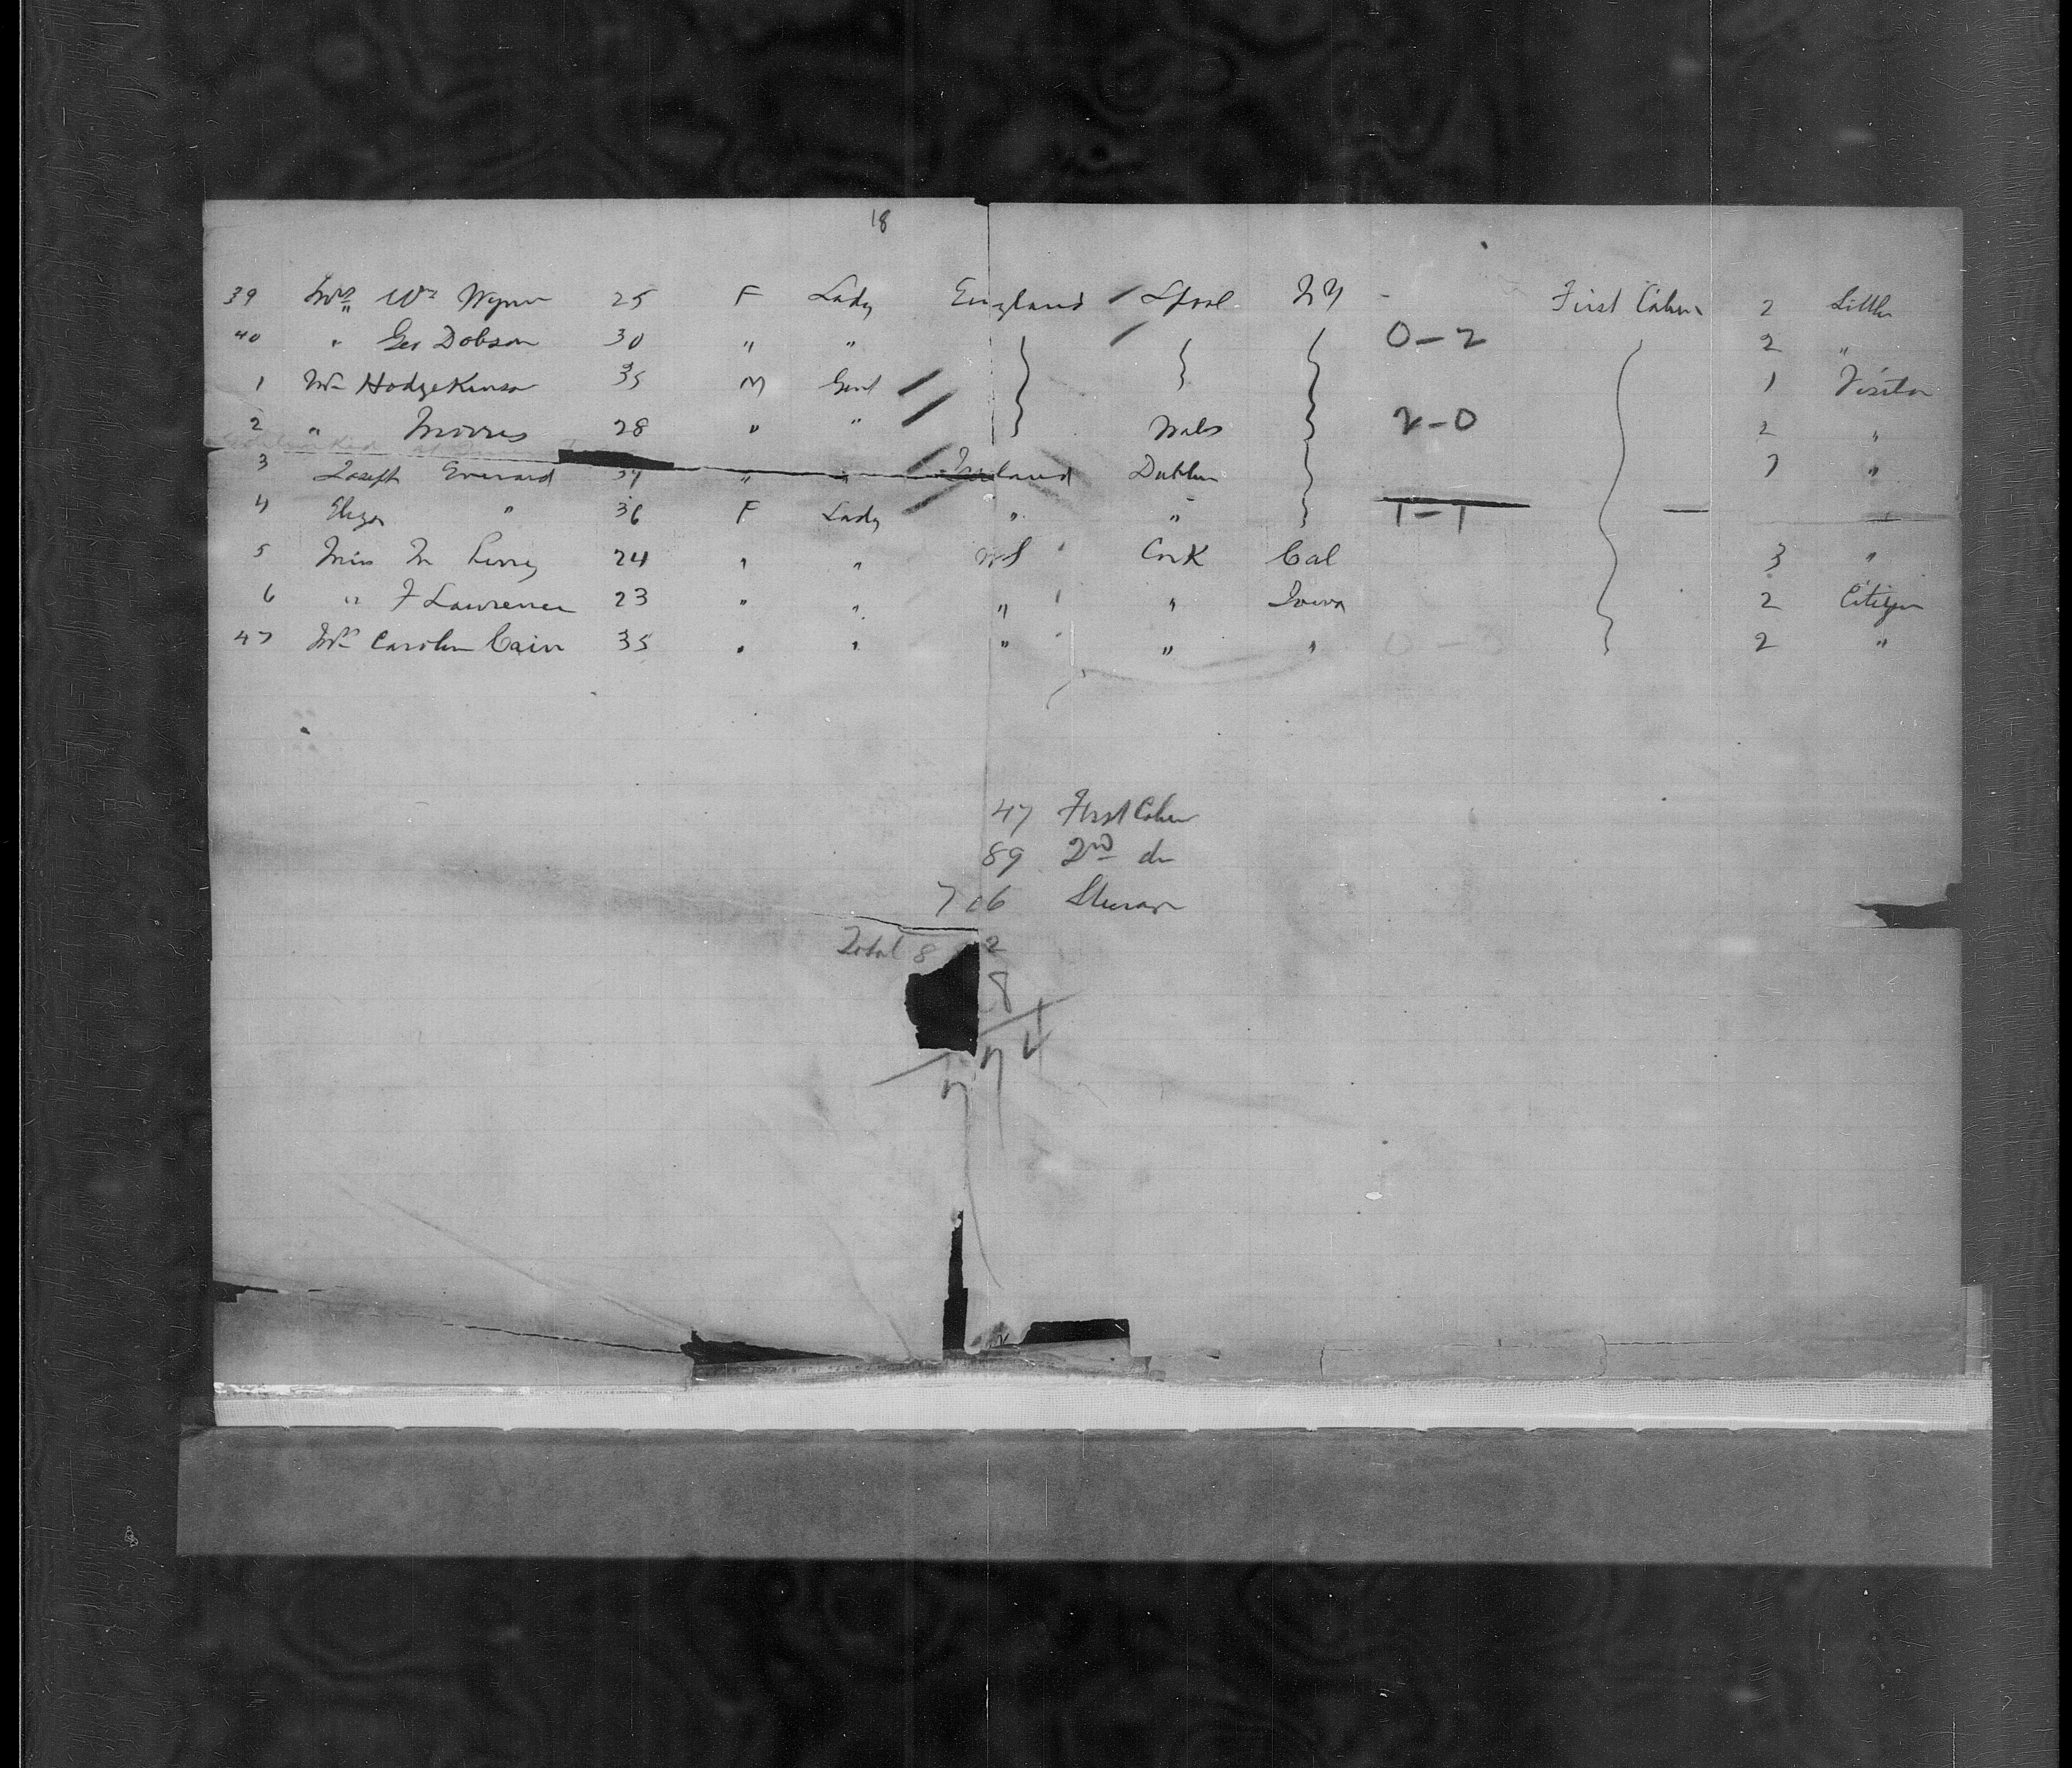 18
39 Mrs Wm Wynn 25 F Lady England Lpool NY - First Cabin 2 Settler
40 " Geo Dobson 30 " " 0-2 2 "
1 Mr HodgeKinson 35 M Gent 1 Visitor
2 " Morris 28 " " Wales 2-0 2 "
3 Joseph Everard 37 " " Ireland Dublin 1 "
4 Eliza " 36 F Lady " " 1-1
5 Miss M 24 " " US Cork Cal 3 "
6 " F Lawrence 23 " " " " Iowa 2 Citizen
47 Mrs Carolin Cain 35 " " " " " 0-3 2 "
47 First Cabin
89 2nd do
706 Steerage
Total 8 2
8